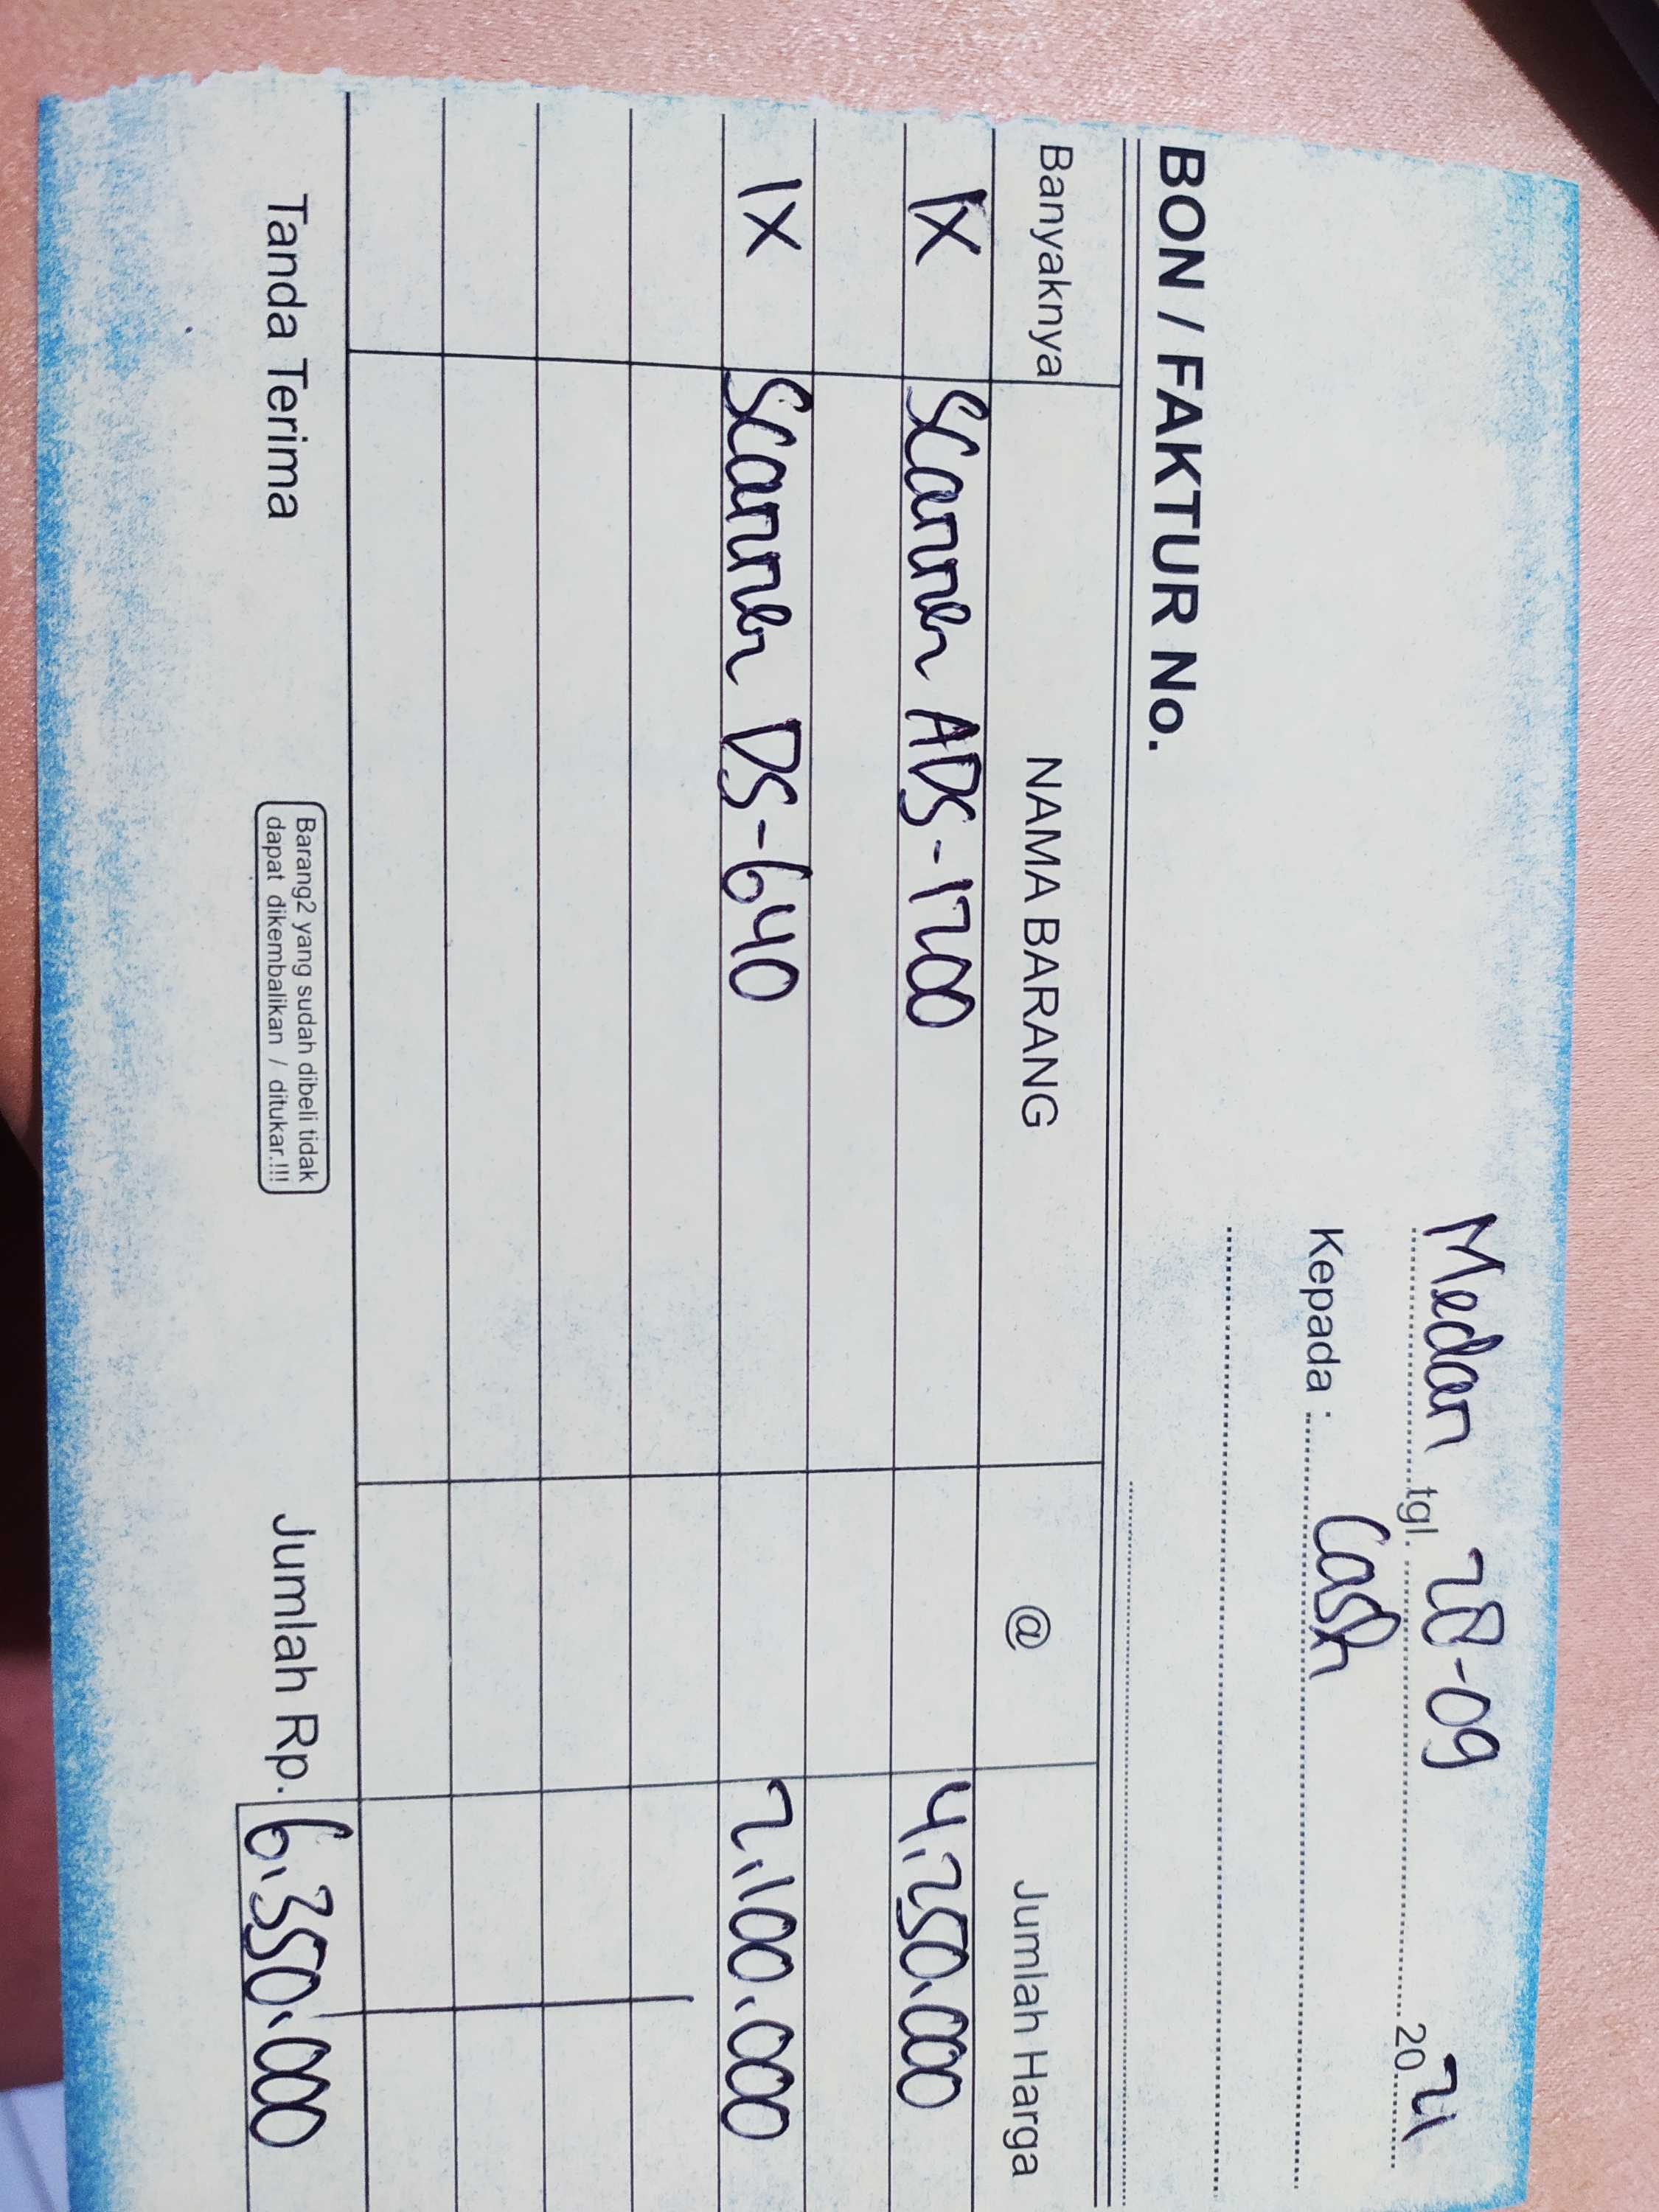 Medan tgl. 28-09 2021
Kepada : Cash
BON / FAKTUR No.
Banyaknya NAMA BARANG @ Jumlah Harga
1X Scanner ADS-1200 4.250.000
1X Scanner DS-640 2.100.000
Tanda Terima Jumlah Rp. 6.350.000
Barang2 yang sudah dibeli tidak
dapat dikembalikan / ditukar.!!!